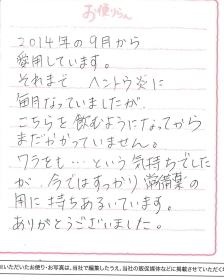 お便りらん
2014年の9月から
愛用しています。
それまで ヘントウ炎に
毎月なっていましたが、
こちらを飲むようになってから
まだかかっていません。
ワラをも…という気持ちでした
が、今ではすっかり常備薬の
用に持ちあるいています。
ありがとうございました。
いただいたお便り・お写真は、当社で編集したうえ、当社の販促媒体などに掲載させていただく